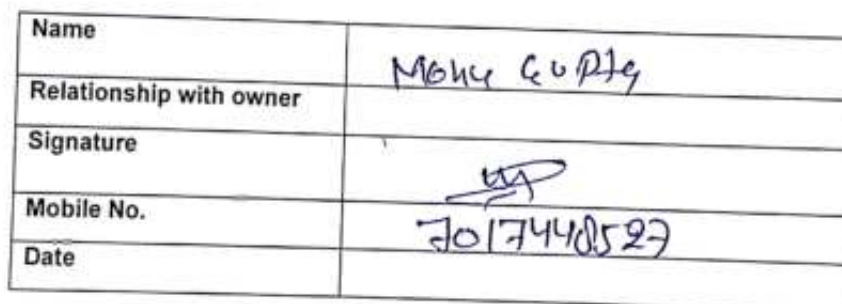 Name Monu Gupta
Relationship with owner
Signature
Mobile No. 7017448527
Date